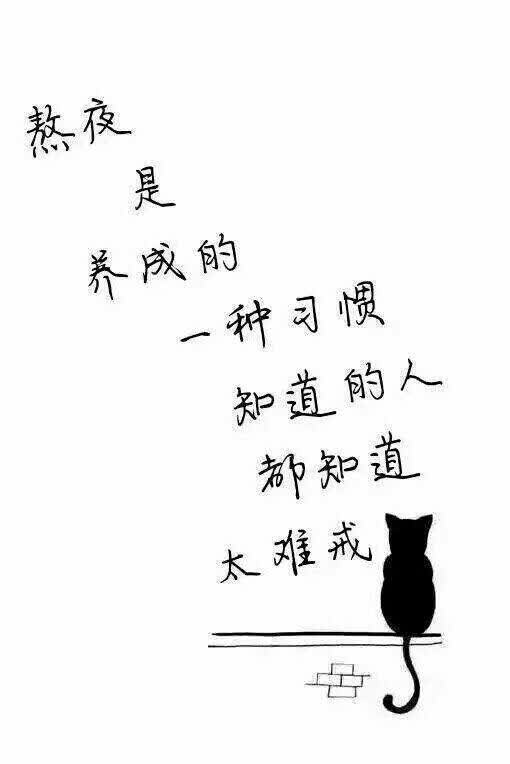 熬夜
是
养成的
一种习惯
知道的人
都知道
太难戒